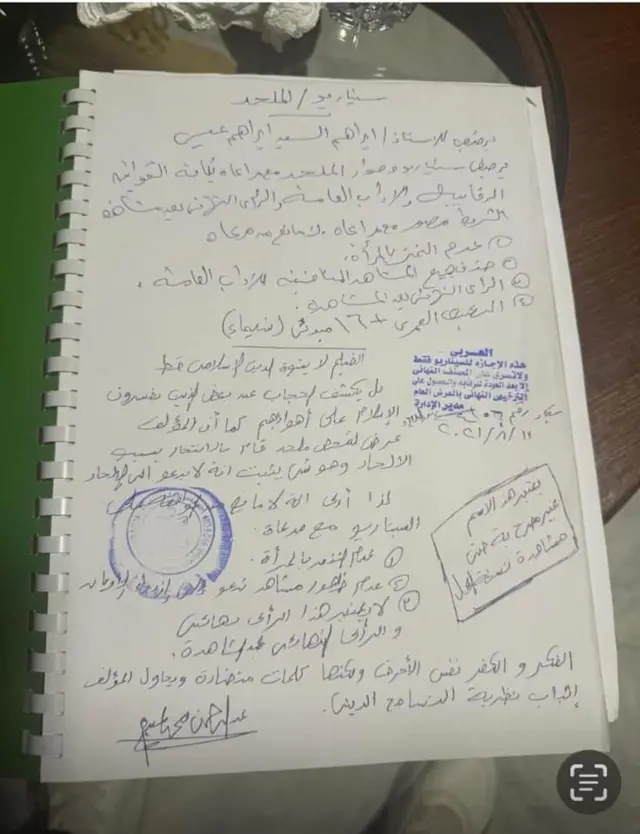 سيناريو / الملحد
يرخص للاستاذ / ابراهيم السعيد ابراهيم عيسى
يرخص سيناريو وحوار الملحد مع مراعاة كافة القوانين
الرقابية والاداب العامة والرأى النهائى بعد مشاهدة
الشريط مصور مع مراعاة
① عدم التحرش بالمرأة.
② حذف جميع المشاهد المنافية للآداب العامة.
③ الرأى النهائى بعد المشاهدة.
④ التصنيف العمرى +١٦ مبدئى (سينماء)
الفيلم لا يشوة الدين الإسلامى قط
بل يكشف الحجاب عن بعض الذين يفسرون
الإسلام على أهوائهم كما أن المؤلف
عرض لشخص ملحد قام بالانتحار بسبب
الالحاد وهو شئ يثبت انة لا يدعو الى الإلحاد
لذا أرى انة لا مانع على
السيناريو مع مراعاة:
① عدم بالمرأة.
② عدم ظهور مشاهد تدعو الأديان
③ لا يعتبر هذا الرأى نهائى
و الرأى النهائى بعد المشاهدة.
الفكر و الكفر نفس الأحرف ولكنها كلمات متضادة ويحاول المؤلف
إثبات نظرية التسامح الدينى.
العربى
هذه الإجازه للسيناريو فقط
ولا تسرى على المصنف النهائى
إلا بعد العودة للرقابه والحصول على
الترخيص النهائى بالعرض العام
مدير الإدارة
يعتبر هذا الاسم
غير مصرح به حتى
مشاهدة نسخة العمل